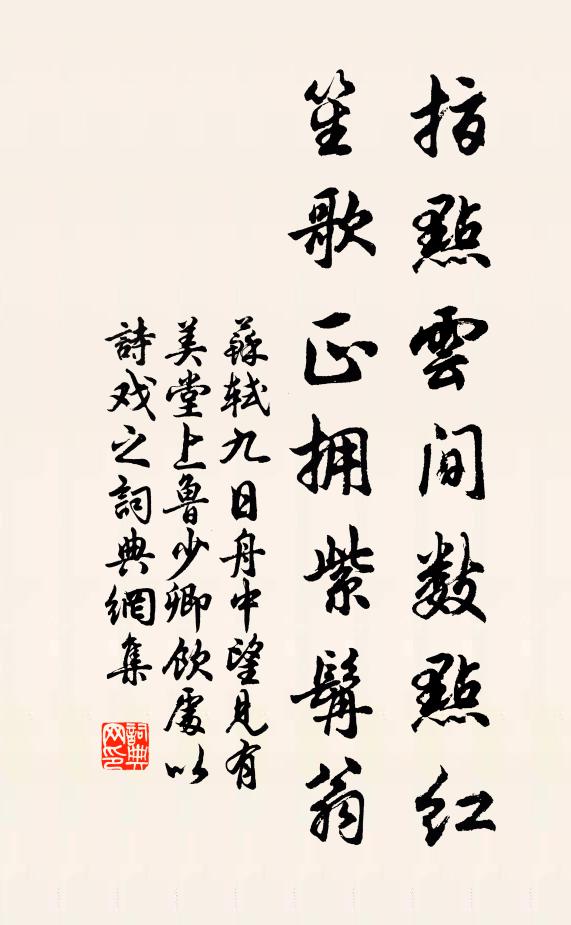 指點雲間數點紅
笙歌正拥紫髯翁
蘇軾九日舟中望見有
美堂上魯少卿飲處以
詩戏之詞典網集
詞典
网印